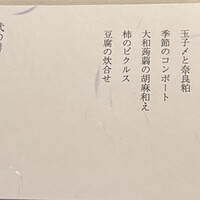 玉子〆と奈良粕
季節のコンポート
大和蒟蒻の胡麻和え
柿のピクルス
豆腐の炊合せ